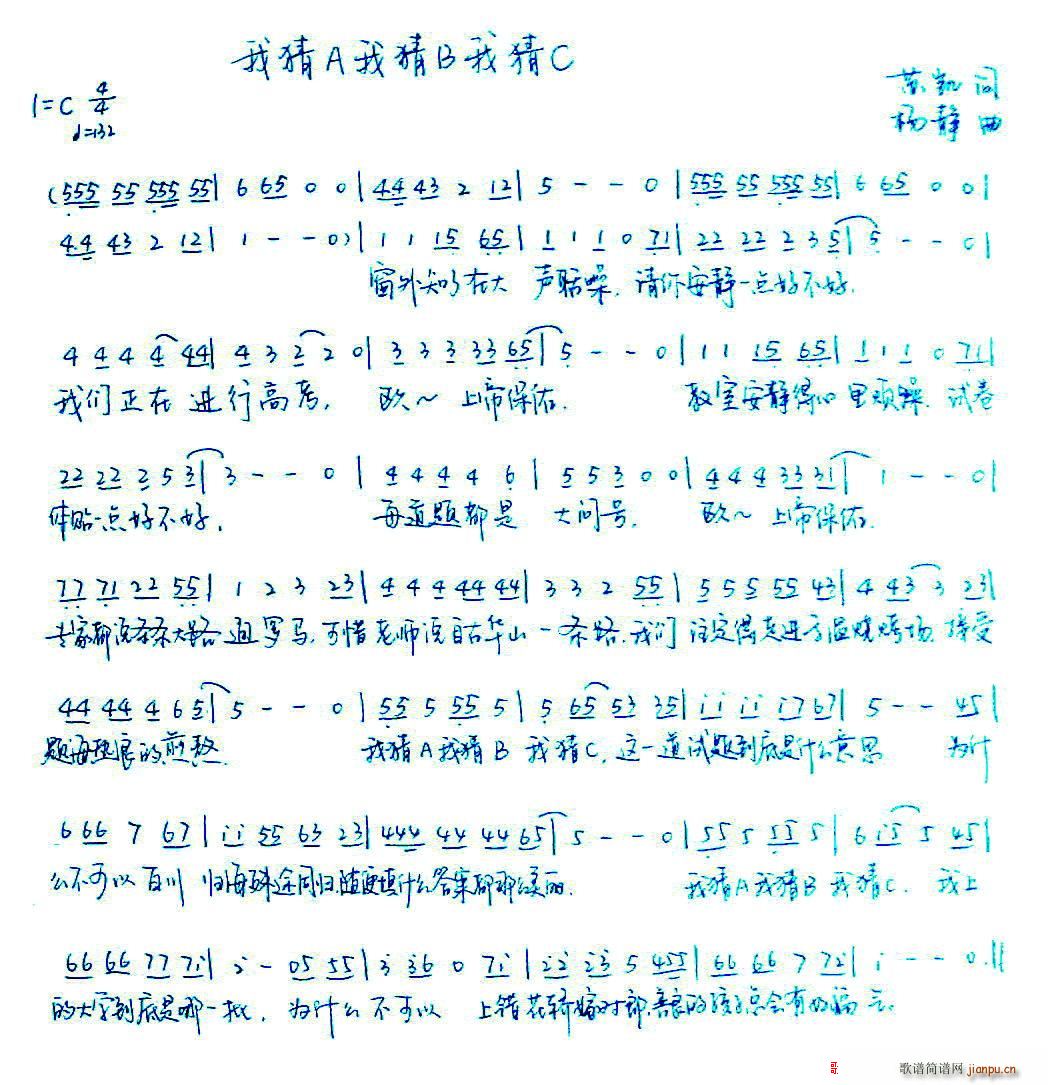 我猜A我猜B我猜C
苏凯 词
1=C 4/4
杨静 曲
♩=132
(555 55 555 55| 6 65 0 0| 44 43 2 12| 5 - - 0 |555 55 555 55| 6 65 0 0|
44 43 2 12| 1 - - 0)| 1 1 15 65| 1 1 1 0 71| 22 22 2 3 5| 5 - - 0|
窗外知了在大 声聒噪. 请你安静一点好不好.
4 4 4 4 44| 4 3 2 2 0| 3 3 3 33 65| 5 - - 0| 1 1 15 65| 1 1 1 0 71|
我们正在 进行高考, 欧～ 上帝保佑. 教室安静得心 里烦躁. 试卷
22 22 2 5 3| 3 - - 0 | 4 4 4 4 6 | 5 5 3 0 0| 4 4 4 33 31| 1 - - 0|
体贴一点好不好. 每道题都是 大问号. 欧～ 上帝保佑.
77 71 22 55| 1 2 3 23| 4 4 4 44 44| 3 3 2 55| 5 5 5 55 43| 4 43 3 23|
专家都说条条大路 通罗马, 可惜老师说自古华山 一条路. 我们 注定得走进高温烧烤场. 接受
44 44 4 6 5| 5 - - 0 | 55 5 55 5| 5 65 53 35| ii ii i7 67| 5 - - 45|
题海热浪的煎熬. 我猜A我猜B 我猜C, 这一道试题到底是什么意思 为什
6 66 7 67| ii 55 63 23| 444 44 44 65| 5 - - 0 | 55 5 55 5| 6 i5 5 45|
么不可以百川 归海殊途同归,随便填什么答案都那么美丽. 我猜A我猜B 我猜C. 我上
66 66 77 7i| 2 - 05 55| 3 36 0 7i| 22 23 5 455| 66 66 7 72| i - - 0.||
的大学到底是哪一批, 为什么不可以 上错花轿嫁对郎,善良的孩子总会有好福气.
歌谱简谱网 jianpu.cn